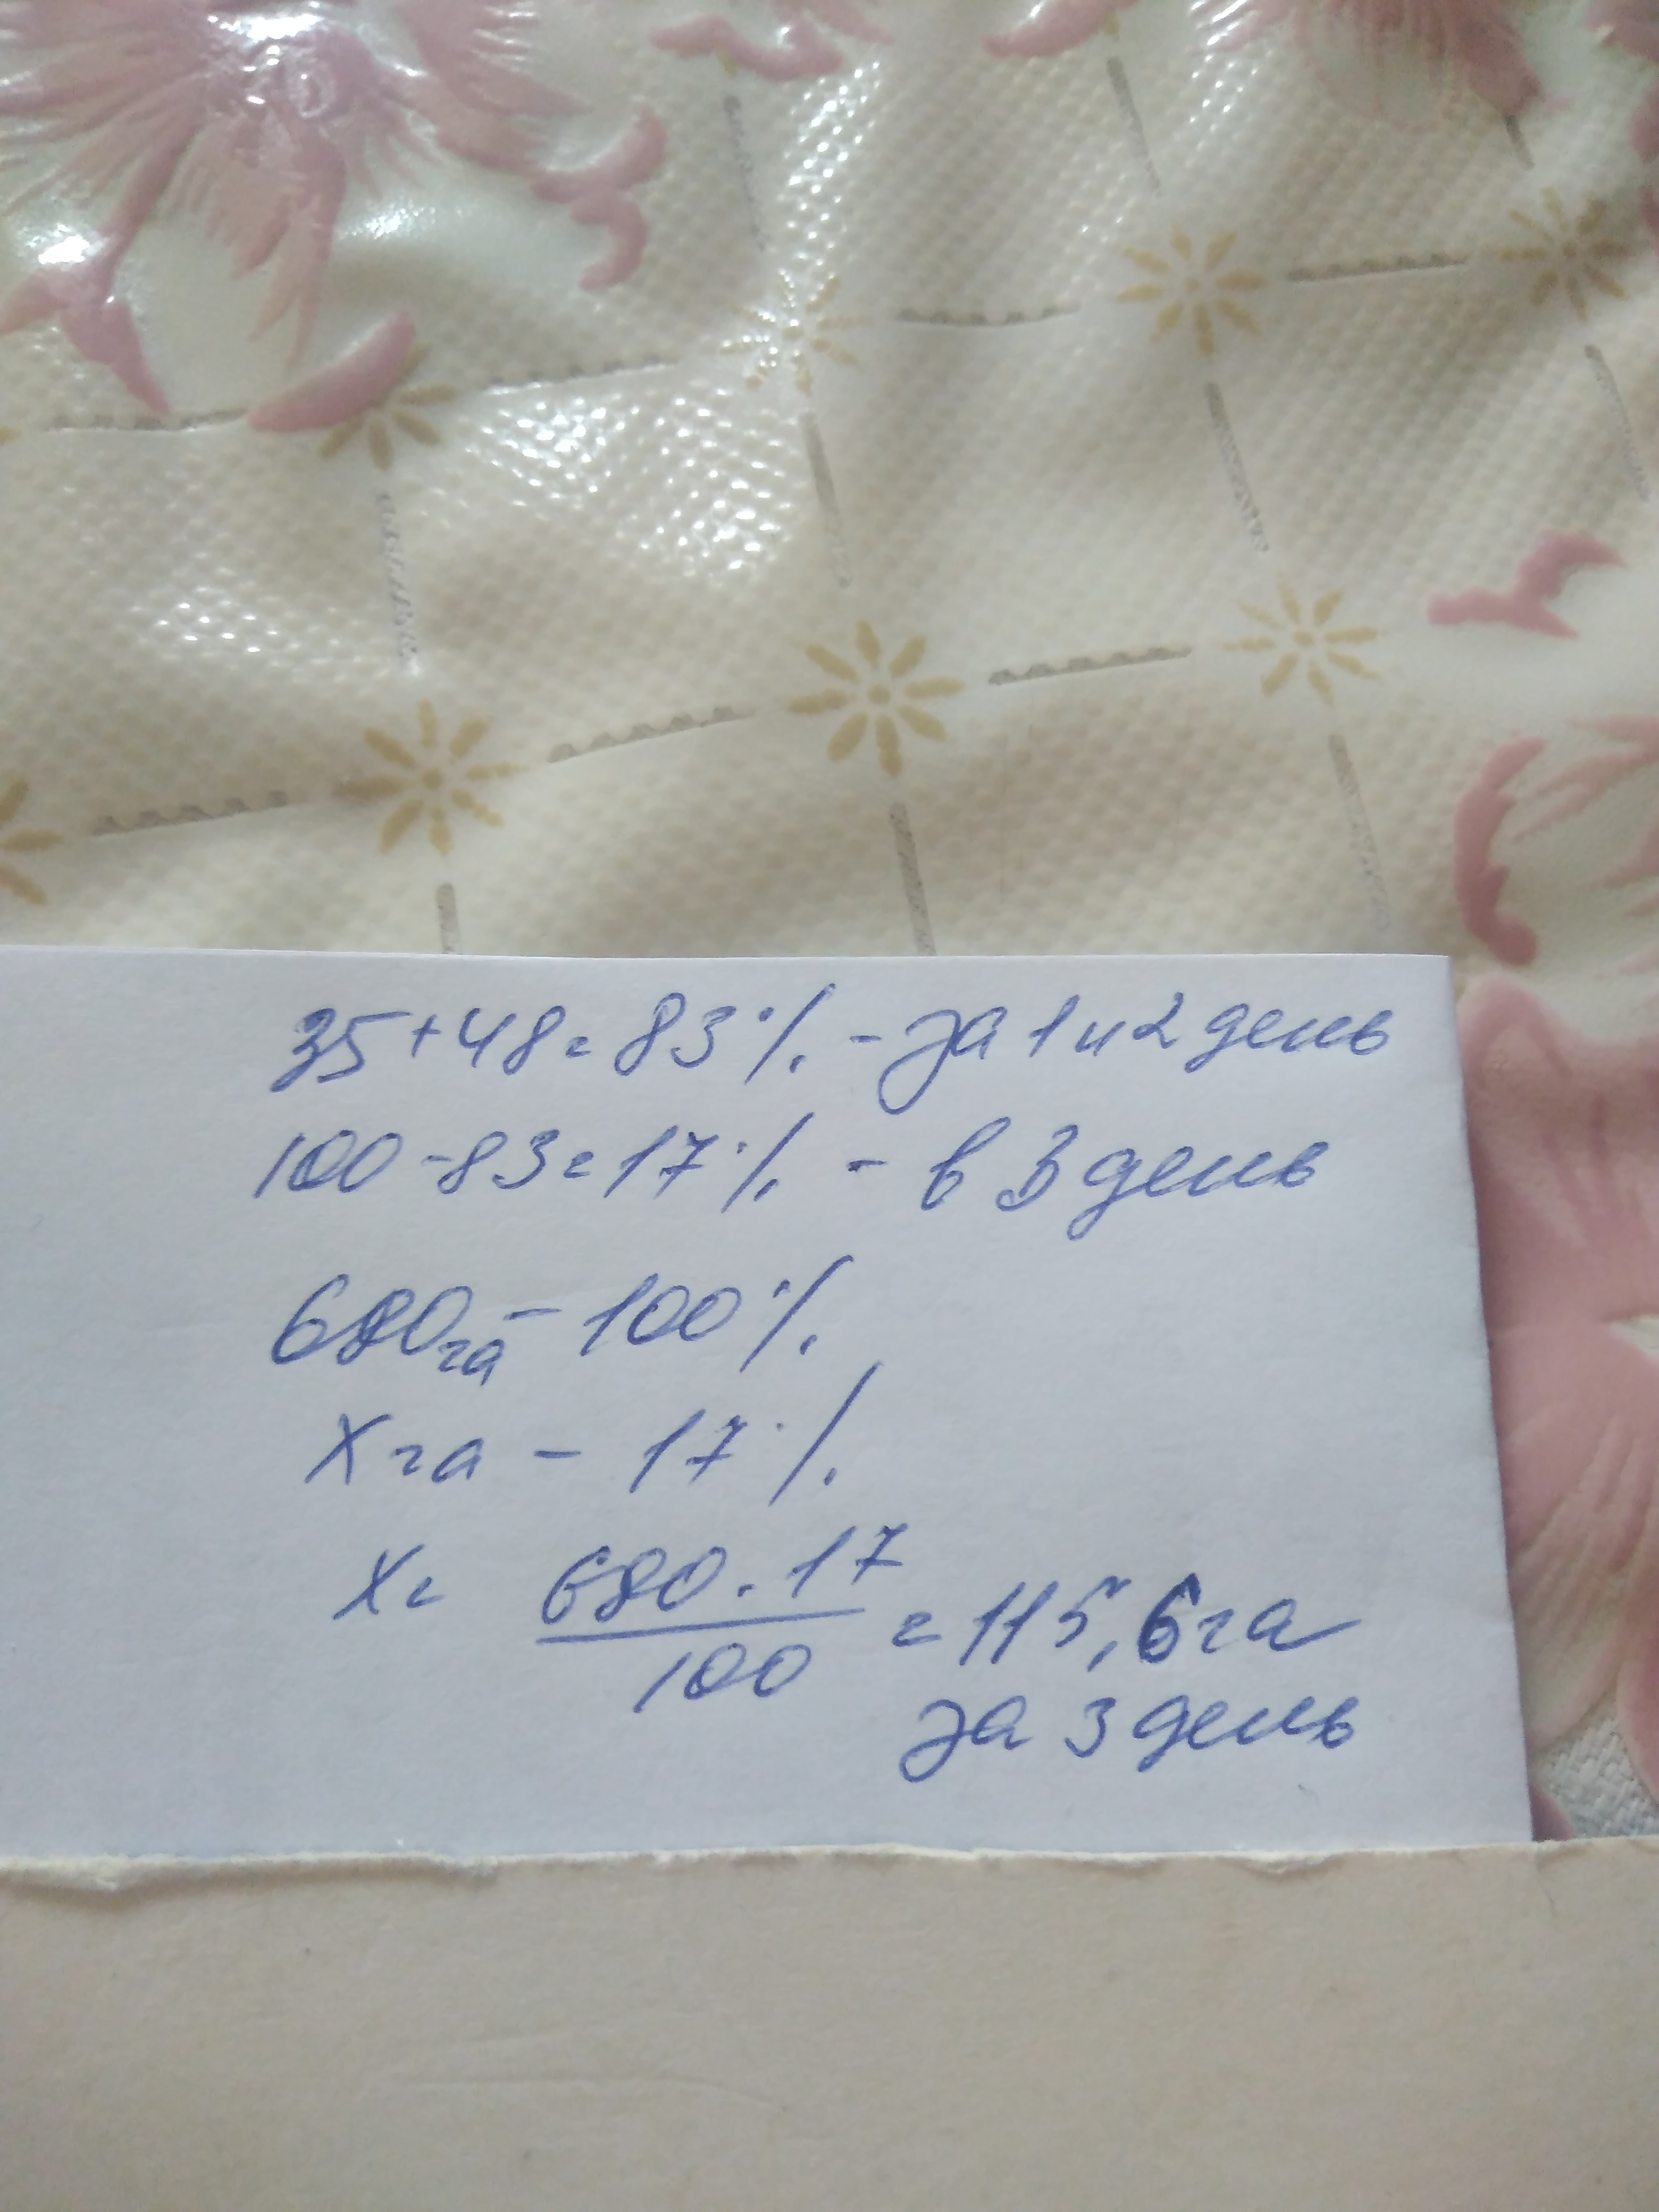 35+48=83% - за 1 и 2 день
100-83=17% - в 3 день
680га - 100%
Х га - 17%
Х= 680·17/100 = 115,6га
за 3 день